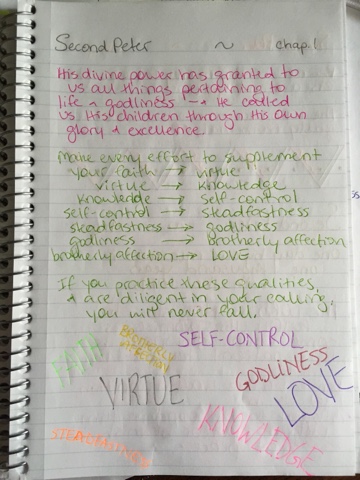 Second Peter ~ chap. 1
His divine power has granted to
us all things pertaining to
life + godliness → He called
us His children through His own
glory + excellence.
Make every effort to supplement
your faith → virtue
virtue → knowledge
knowledge → self-control
self-control → steadfastness
steadfastness → godliness
godliness → Brotherly affection
brotherly affection → LOVE
If you practice these qualities,
+ are diligent in your calling,
you will never fall.
SELF-CONTROL
BROTHERLY
AFFECTION
FAITH
GODLINESS
VIRTUE
LOVE
KNOWLEDGE
STEADFASTNESS